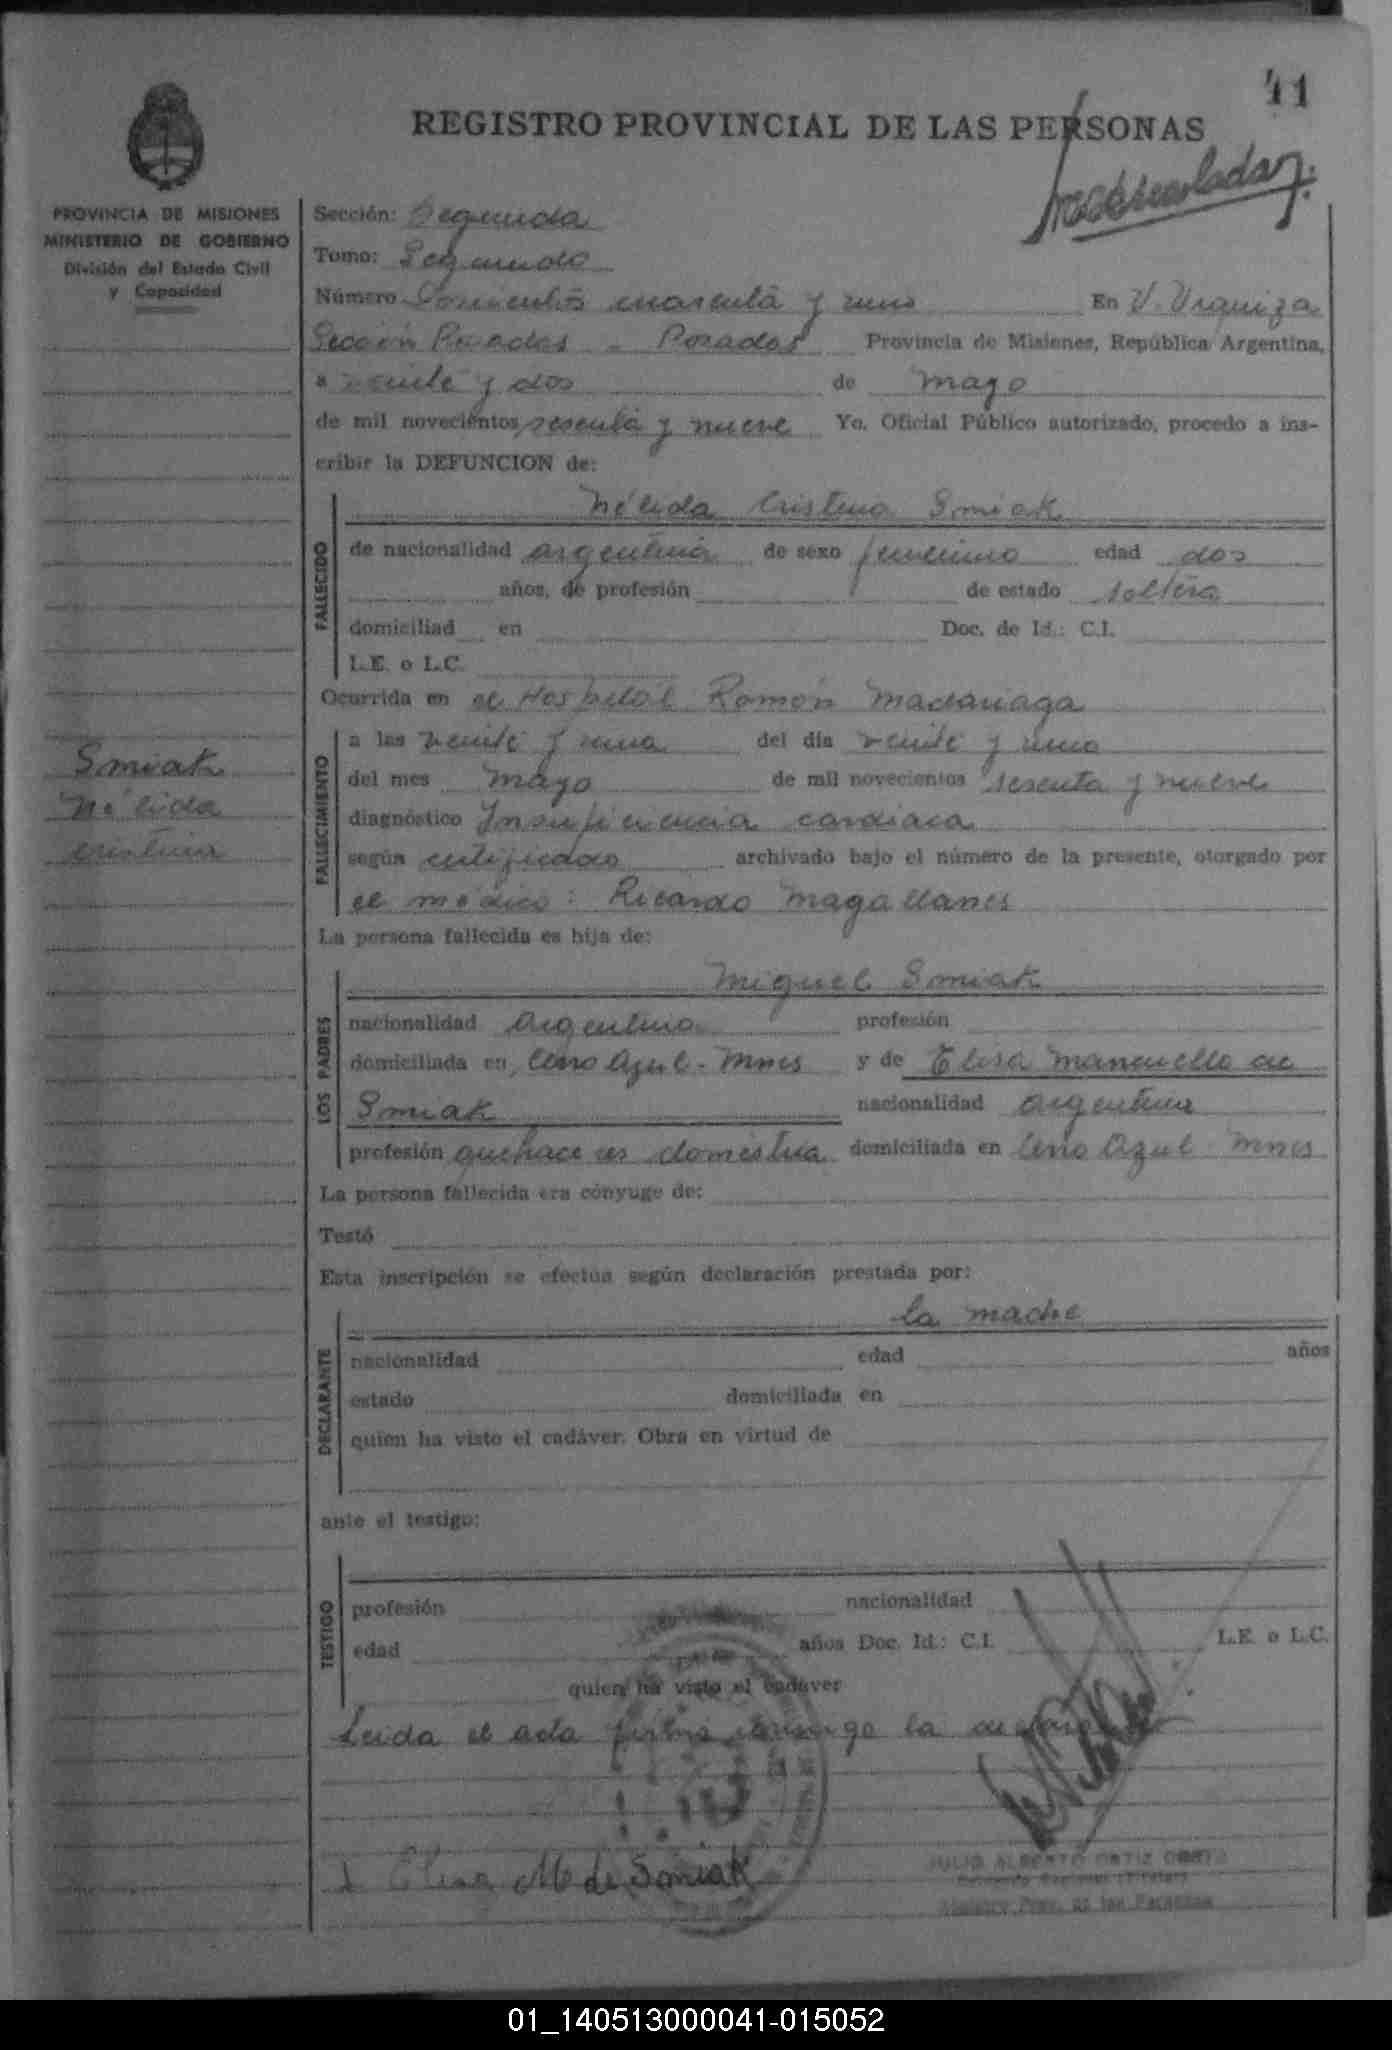 41
REGISTRO PROVINCIAL DE LAS PERSONAS
PROVINCIA DE MISIONES
MINISTERIO DE GOBIERNO
División del Estado Civil
y Capacidad
Sección: Segunda
Tomo: Segundo
Número cuarenta y uno En V. Urquiza
Sección Posadas - Posadas Provincia de Misiones, República Argentina,
a veinte y dos de mayo
de mil novecientos sesenta y nueve Yo, Oficial Público autorizado, procedo a ins-
cribir la DEFUNCION de:
FALLECIDO
Nélida Cristina Smiak
de nacionalidad argentina de sexo femenino edad dos
años, de profesión de estado soltera
domiciliad en Doc. de Id.: C.I.
L.E. o L.C.
Ocurrida en el Hospital Ramón Madariaga
FALLECIMIENTO
a las veinte y una del día veinte y uno
del mes mayo de mil novecientos sesenta y nueve
diagnóstico Insuficiencia cardiaca
según certificado archivado bajo el número de la presente, otorgado por
el médico: Ricardo Magallanes
Smiak
Nélida
Cristina
La persona fallecida es hija de:
LOS PADRES
Miguel Smiak
nacionalidad Argentino profesión
domiciliada en, Cerro Azul - Mnes y de Elisa Manciello de
Smiak nacionalidad argentina
profesión quehaceres domestica domiciliada en Cerro Azul Mnes
La persona fallecida era cónyuge de:
Testó
Esta inscripción se efectúa según declaración prestada por:
DECLARANTE
la madre
nacionalidad edad años
estado domiciliada en
quien ha visto el cadáver. Obra en virtud de
ante el testigo:
TESTIGO
profesión nacionalidad
edad años Doc. Id.: C.I. L.E. o L.C.
quien ha visto el cadáver
Leida el acta firma conmigo la
M de Smiak
JULIO ALBERTO ORTIZ